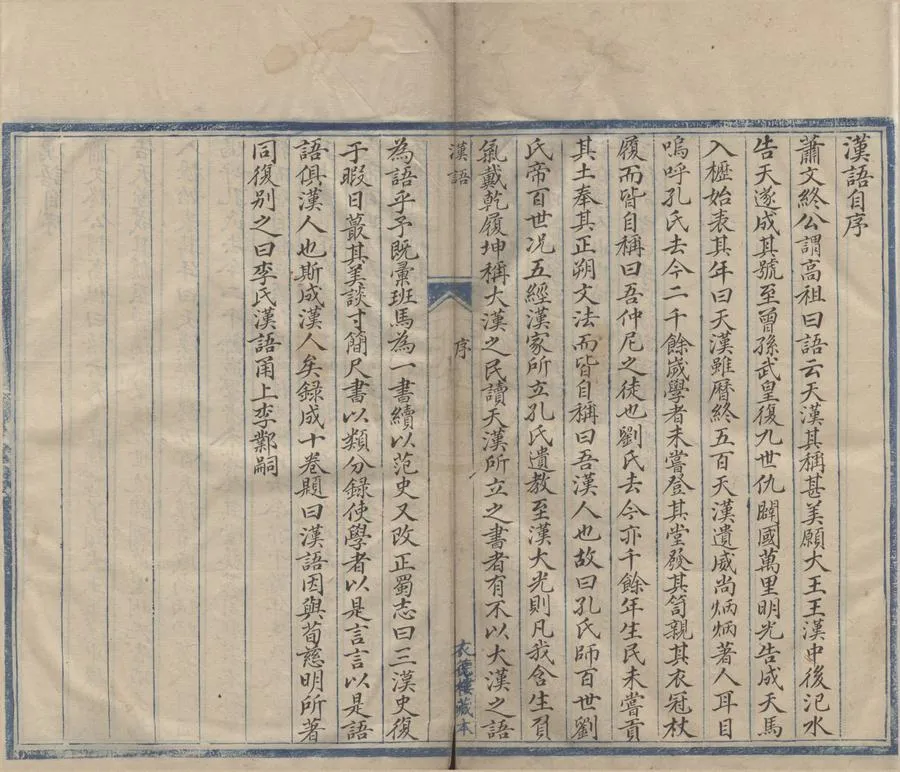 漢語自序
蕭文終公謂高祖曰語云天漢其稱甚美願大王王漢中後汜水
告天遂成其號至曾孫武皇復九世仇闢國萬里明光告成天馬
入櫪始表其年曰天漢雖曆終五百天漢遺威尚炳炳著人耳目
嗚呼孔氏去今二千餘嵗學者未嘗登其堂發其笥親其衣冠杖
履而皆自稱曰吾仲尼之徒也劉氏去今亦千餘年生民未嘗貢
其土奉其正朔文法而皆自稱曰吾漢人也故曰孔氏師百世劉
氏帝百世况五經漢家所立孔氏遺教至漢大光則凡我含生負
氣戴乾履坤稱大漢之民讀天漢所立之書者有不以大漢之語
漢語
序
衣德樓藏本
為語乎予既彙班馬為一書續以范史又改正蜀志曰三漢史復
于暇日蕞其美談寸簡尺書以類分録使學者以是言言以是語
語俱漢人也斯成漢人矣録成十卷題曰漢語因與荀慈明所著
同復别之曰李氏漢語甬上李鄴嗣